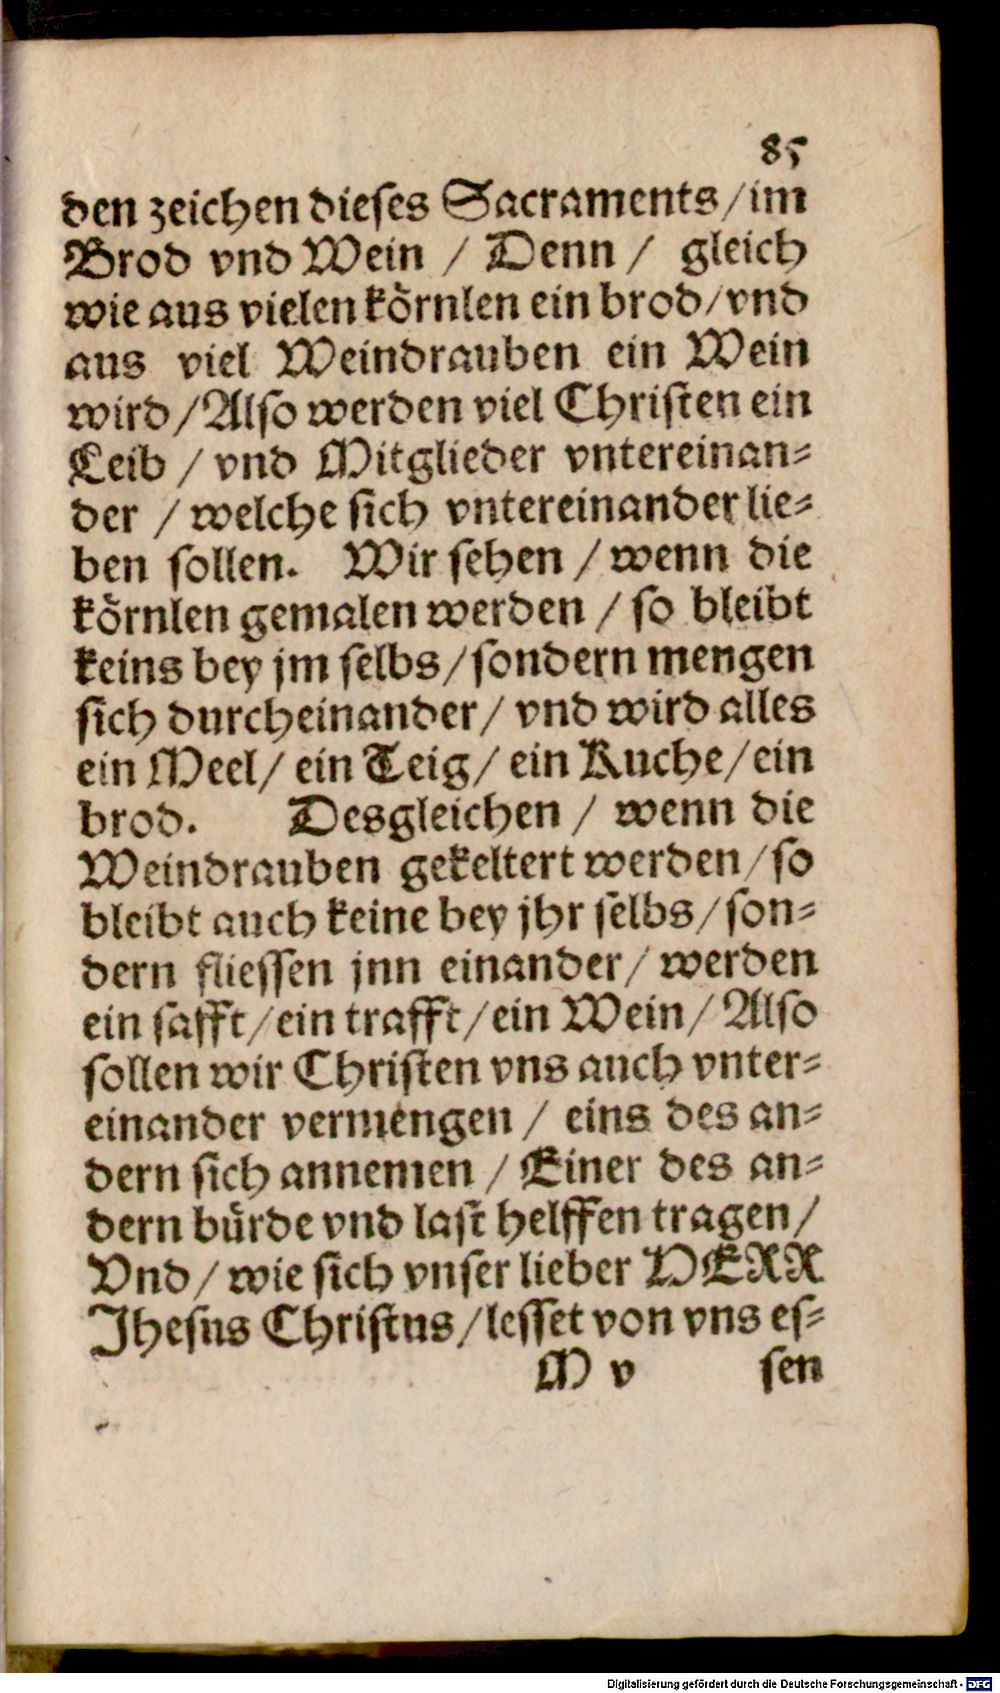 85
den zeichen dieses Sacraments/im
Brod vnd Wein / Denn / gleich
wie aus vielen körnlen ein brod/vnd
aus viel Weindrauben ein Wein
wird/Also werden viel Christen ein
Leib / vnd Mitglieder vntereinan-
der / welche sich vntereinander lie-
ben sollen. Wir sehen / wenn die
körnlen gemalen werden / so bleibt
keins bey jm selbs/sondern mengen
sich durcheinander/ vnd wird alles
ein Meel/ ein Teig/ ein Kuche/ein
brod. Desgleichen / wenn die
Weindrauben gekeltert werden/so
bleibt auch keine bey jhr selbs/son-
dern fliessen jnn einander/ werden
ein safft/ein trafft/ein Wein/ Also
sollen wir Christen vns auch vnter-
einander vermengen / eins des an-
dern sich annemen / Einer des an-
dern bürde vnd last helffen tragen/
Vnd/ wie sich vnser lieber HERR
Jhesus Christus/lesset von vns es-
M v sen
Digitalisierung gefördert durch die Deutsche Forschungsgemeinschaft - DFG